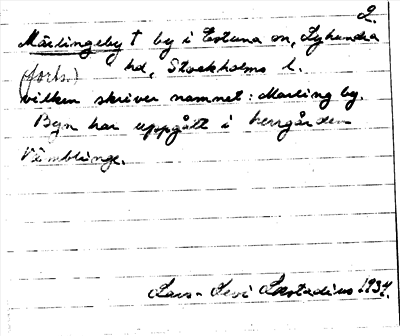 2.
Märlingeby † by i Estuna sn, Lyhundra
(forts.) hd, Stockholms l.
vilken skriver namnet: Marling by.
Byn har uppgått i herrgården
Vämblinge.
Lars-Levi Læstadius 1937.